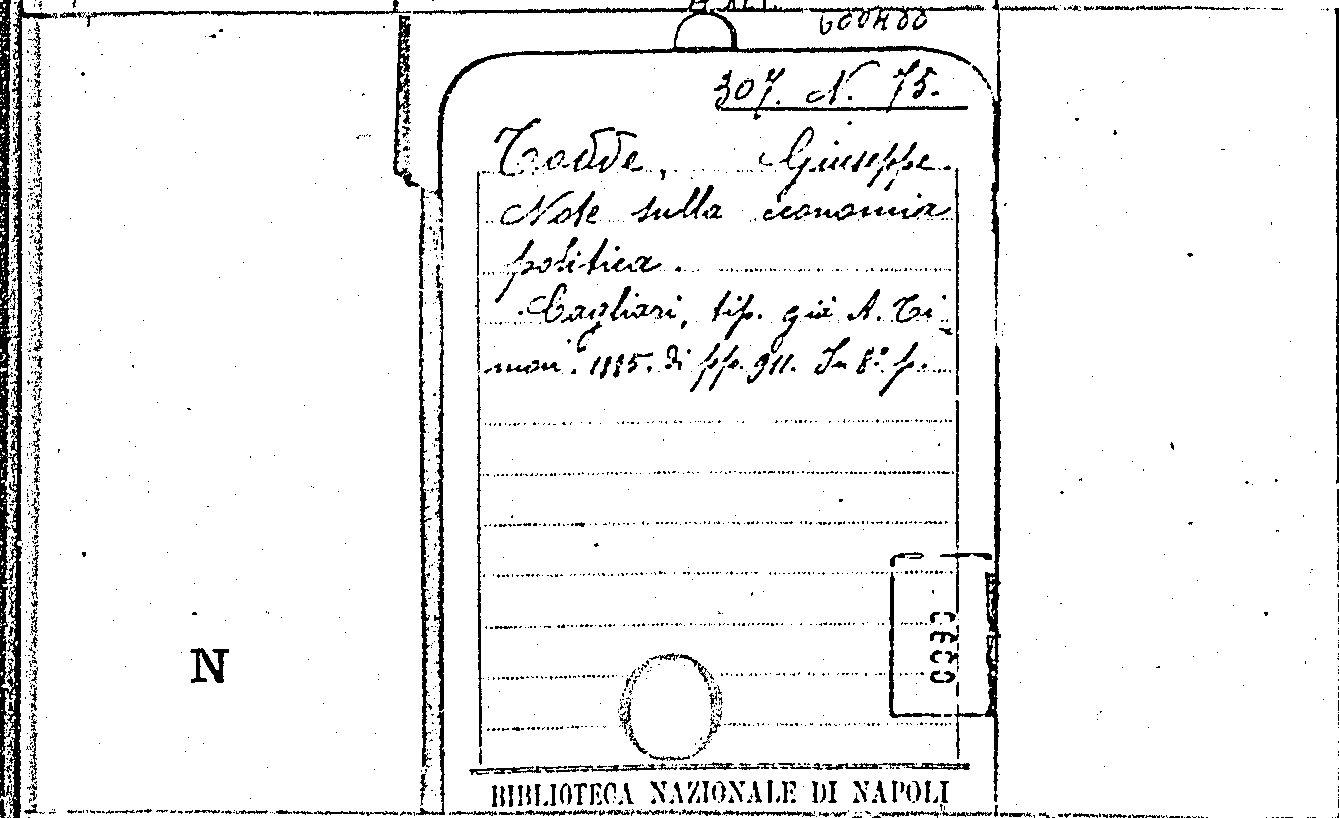 307. N. 75.
Todde, Giuseppe.
Note sulla economia
politica.
Cagliari, tip. già A. Ti-
mon. 1885. di pp. 911. In 8° p.
N
BIBLIOTECA NAZIONALE DI NAPOLI